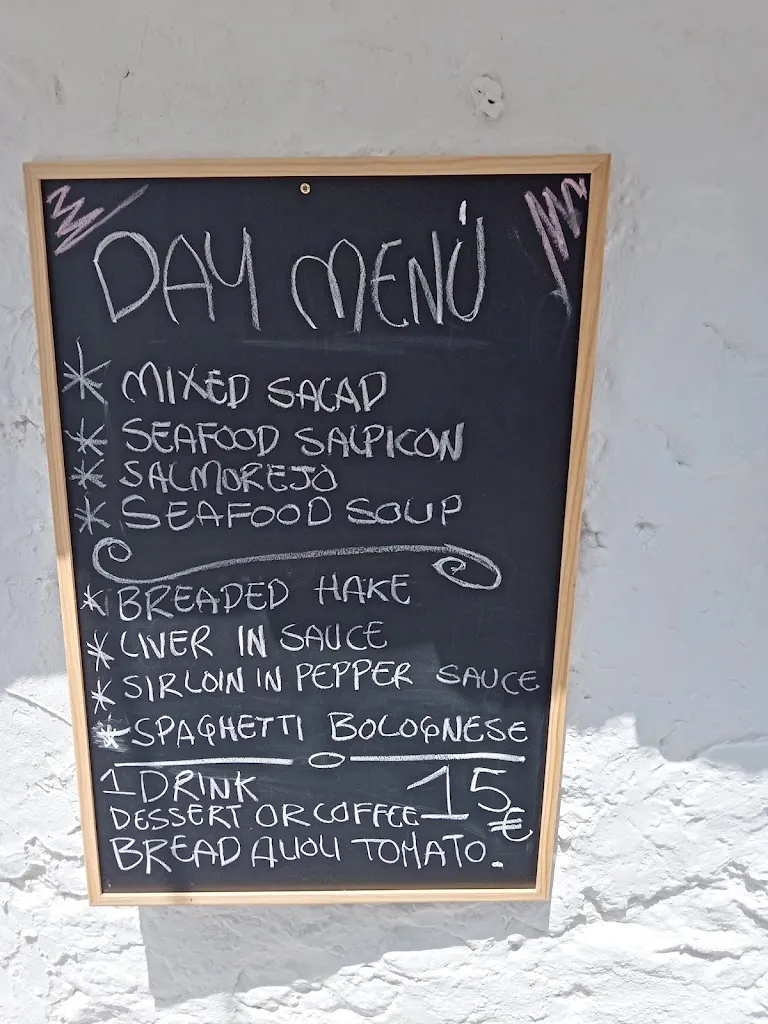 DAY MENÚ
* MIXED SALAD
* SEAFOOD SALPICON
* SALMOREJO
* SEAFOOD SOUP
* BREADED HAKE
* LIVER IN SAUCE
* SIRLOIN IN PEPPER SAUCE
* SPAGHETTI BOLOGNESE
1 DRINK
DESSERT OR COFFEE 15€
BREAD ALIOLI TOMATO.